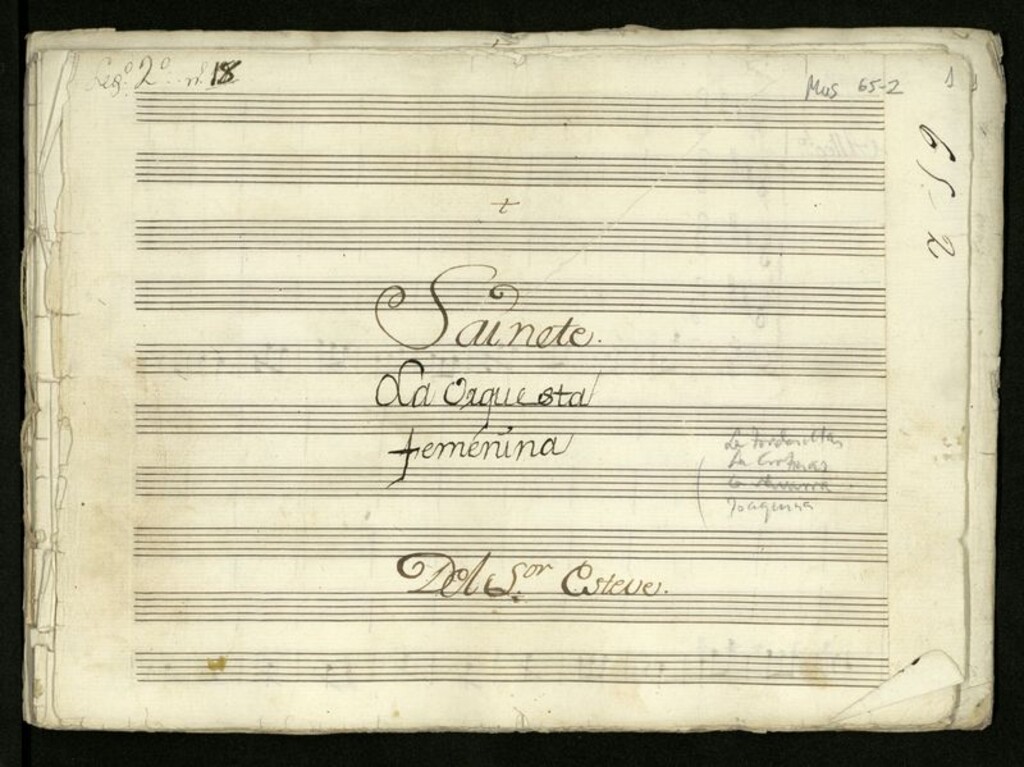 Leg.º 2.º n.º 18
Mus 65-2
1
65-2
t
Sainete.
La Orquesta
femenina
La Tordesillas
La
La Navarra
Joaquina
Del S.or Esteve.